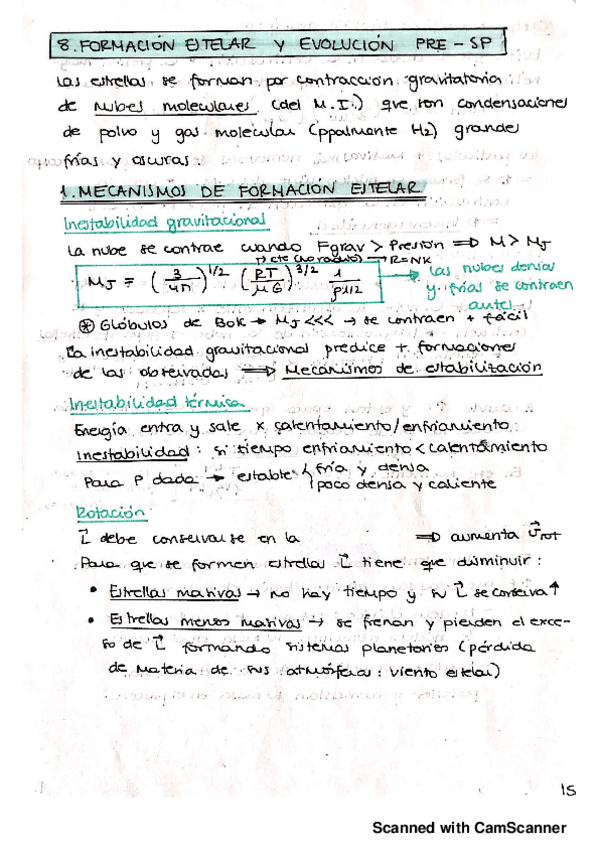 8. FORMACIÓN ESTELAR Y EVOLUCIÓN PRE-SP
Las estrellas se forman por contracción gravitatoria
de nubes moleculares (del M.I.) que son condensaciones
de polvo y gas molecular (ppalmente H2) grandes
frías y oscuras
1. MECANISMOS DE FORMACIÓN ESTELAR
Inestabilidad gravitacional
La nube se contrae cuando Fgrav > Presión ⇒ M > MJ
→ cte (no radio) → R=NK
MJ = (3/4π)^1/2 (RT/μG)^3/2 1/ρ1/2 → Las nubes densas
y frías se contraen
antes
⊛ Glóbulos de Bok → MJ <<< → se contraen + fácil
La inestabilidad gravitacional predice + formaciones
de las observadas ⇒ Mecanismos de estabilización
Inestabilidad térmica
Energía entra y sale x calentamiento/enfriamiento
Inestabilidad: si tiempo enfriamiento < calentamiento
Para P dada → estable { fría y densa
poco densa y caliente
Rotación
L debe conservarse en la ⇒ aumenta vrot
Para que se formen estrellas L tiene que disminuir:
• Estrellas masivas → no hay tiempo y su L se conserva ↑
• Estrellas menos masivas → se frenan y pierden el exce-
so de L formando sistemas planetarios (pérdida
de materia de sus atmósferas: viento estelar)
15
Scanned with CamScanner